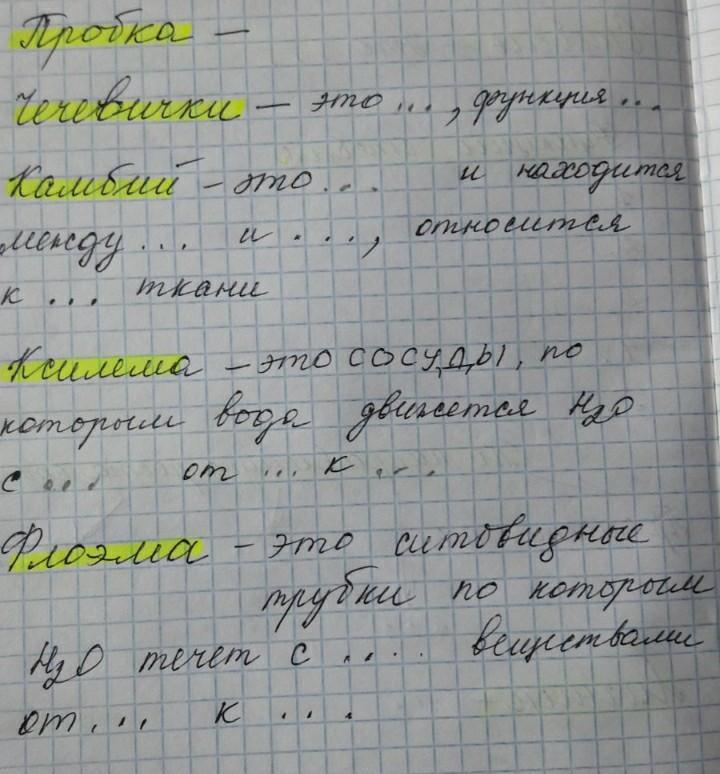 Пробка —
Чечевички — это ..., функция ...
Камбий — это ... и находится
между ... и ..., относится
к ... ткани
Ксилема — это сосуды, по
которым вода движется H2O
с ... от ... к ...
Флоэма — это ситовидные
трубки по которым
H2O течет с .... веществами
от ... к ...